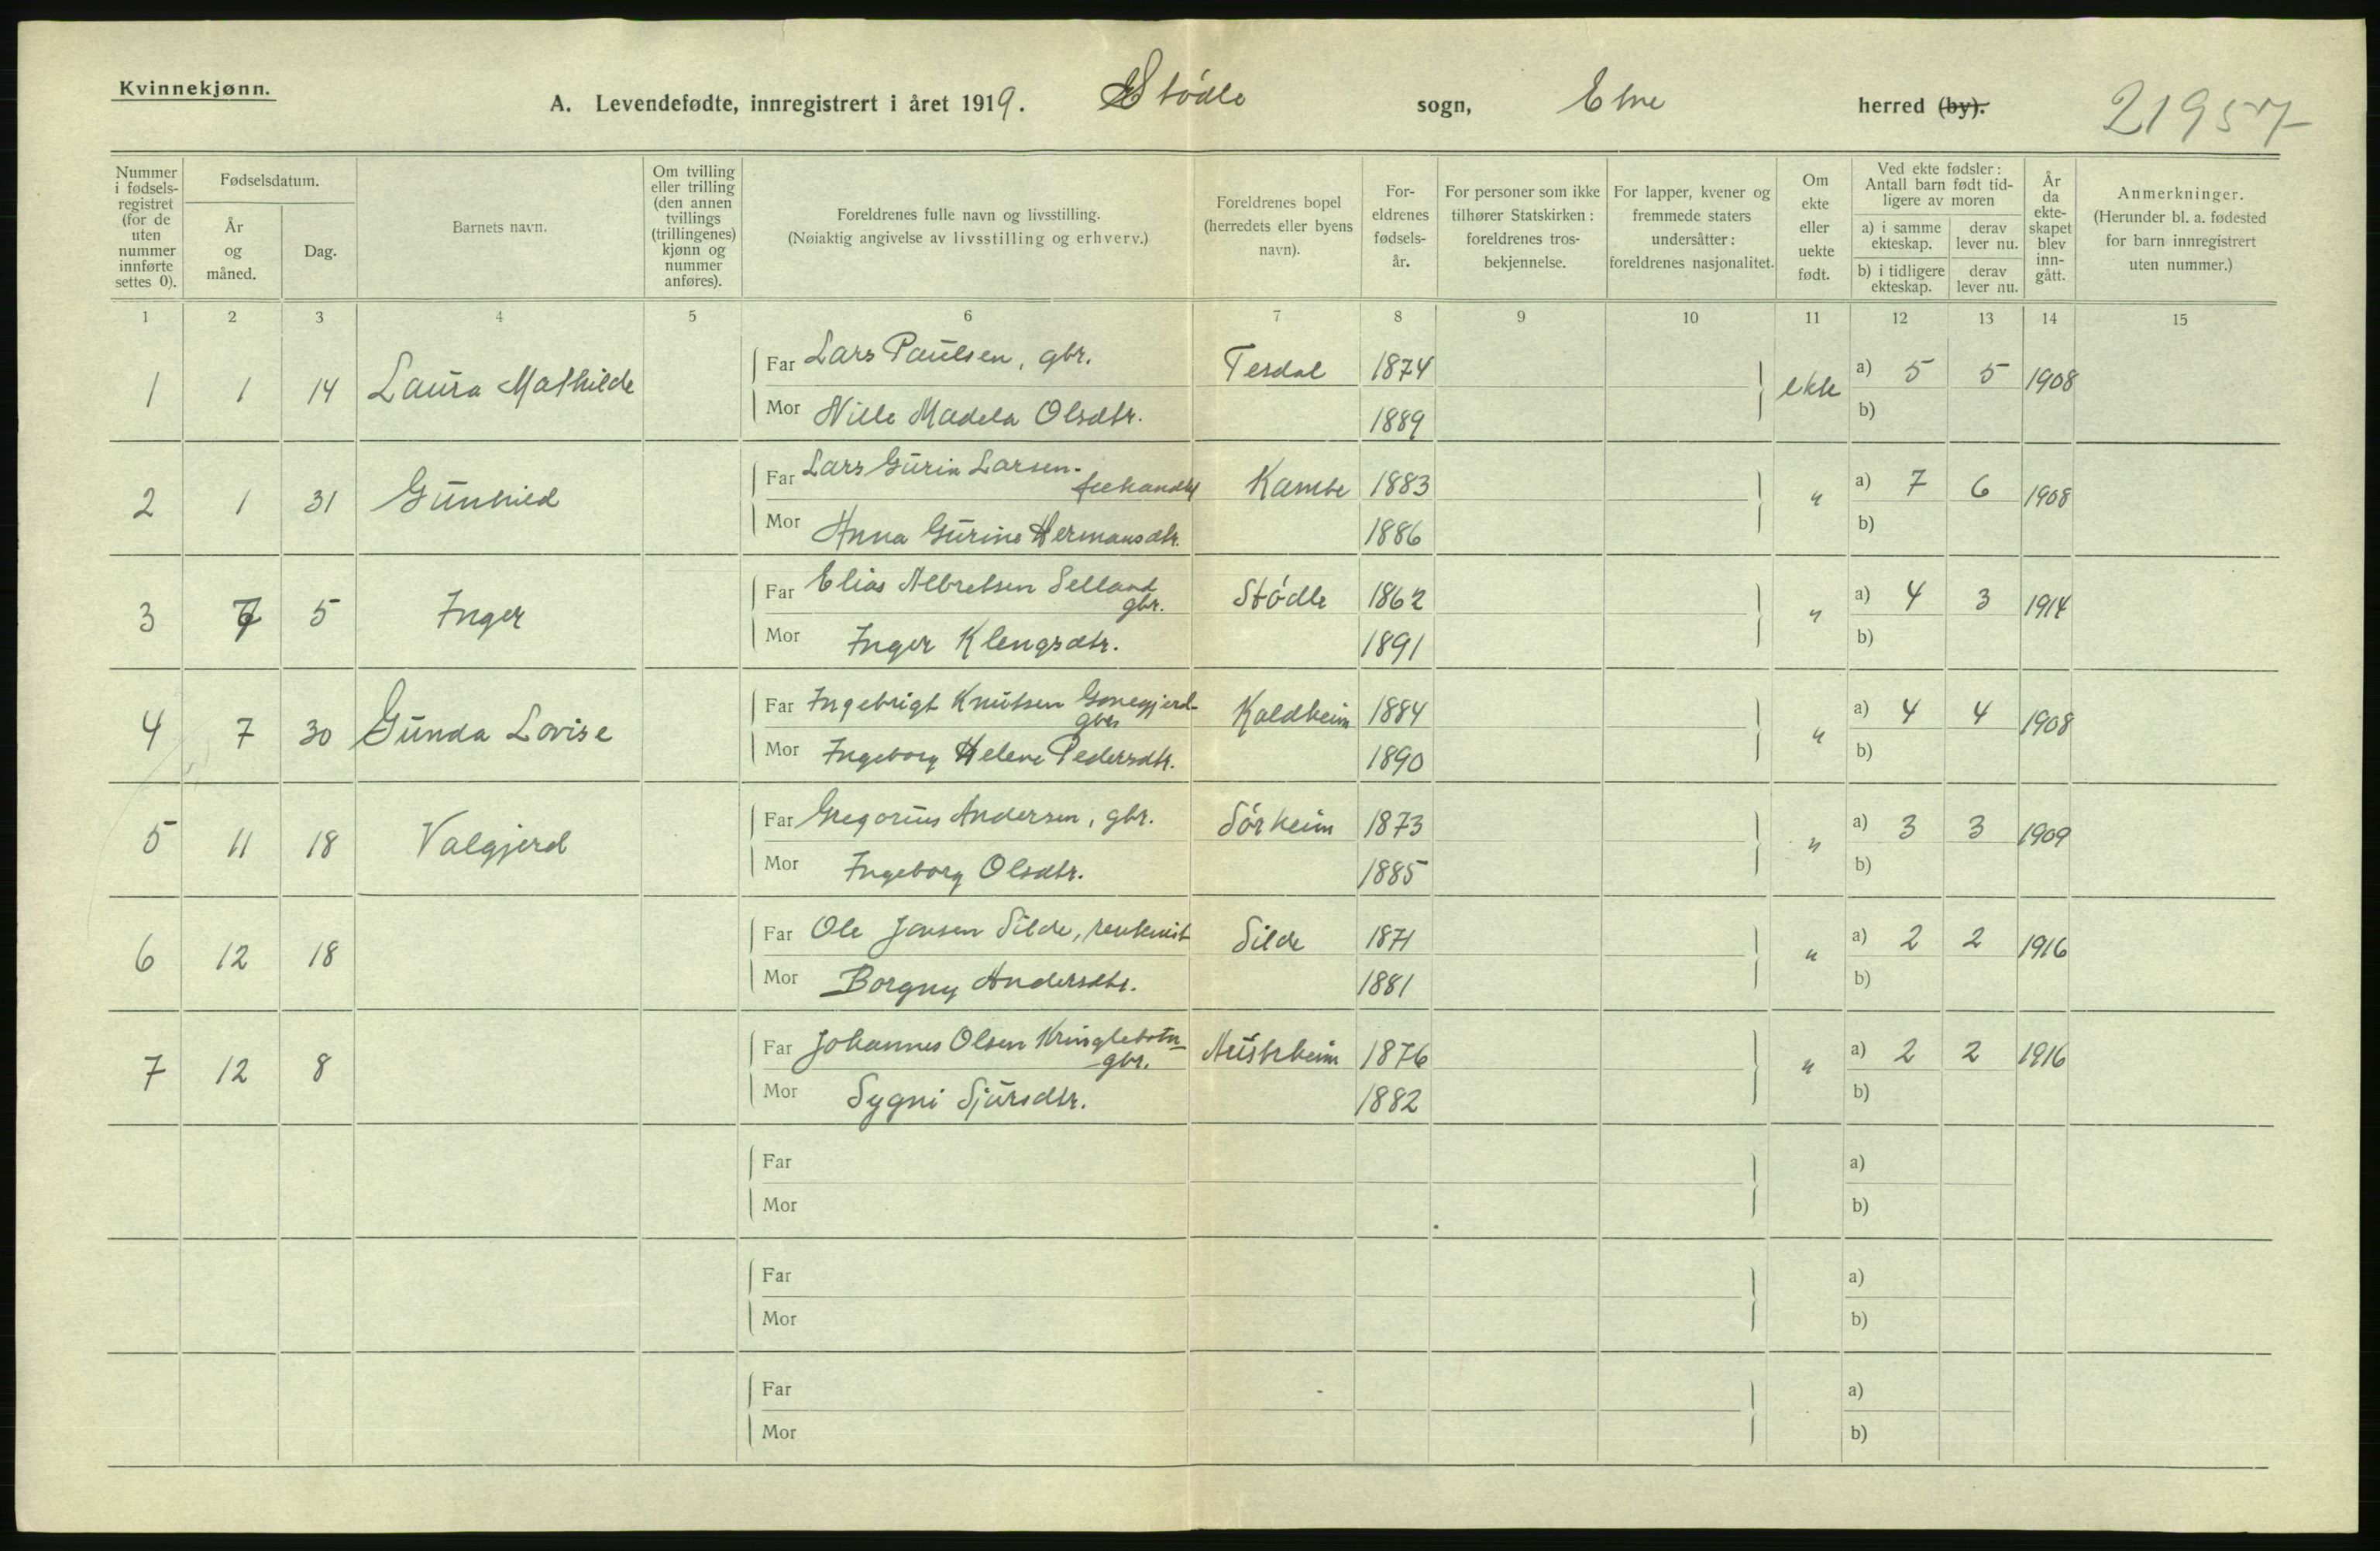 Kvinnekjønn.
A. Levendefødte, innregistrert i året 1919. Stódle sogn, Etne herred (by). 21957
Nummer i fødsels-registret (for de uten nummer innførte settes 0).
Fødselsdatum.
År og måned.
Dag.
Barnets navn.
Om tvilling eller trilling (den annen tvillings (trillingenes) kjønn og nummer anføres).
Foreldrenes fulle navn og livsstilling.
(Nøiaktig angivelse av livsstilling og erhverv.)
Foreldrenes bopel (herredets eller byens navn).
For-eldrenes fødsels-år.
For personer som ikke tilhører Statskirken: foreldrenes tros-bekjennelse.
For lapper, kvener og fremmede staters undersåtter: foreldrenes nasjonalitet.
Om ekte eller uekte født.
Ved ekte fødsler: Antall barn født tid-ligere av moren
a) i samme ekteskap. derav lever nu.
b) i tidligere ekteskap. derav lever nu.
År da ekte-skapet blev inn-gått.
Anmerkninger.
(Herunder bl. a. fødested for barn innregistrert uten nummer.)
1 2 3 4 5 6 7 8 9 10 11 12 13 14 15
1 1 14 Laura Mathilde Far Lars Paulsen, gbr. Tesdal 1874 ekte a) 5 5 1908
Mor Nille Madela Olsdtr. 1889 b)
2 1 31 Gunhild Far Lars Gurin Larsen. Kambe 1883 " a) 7 6 1908
Mor Anna Gurine Hermansdtr. 1886 b)
3 7 5 Inger Far Elias Albretsen Selland gbr. Stódle 1862 " a) 4 3 1914
Mor Inger Klengsdtr. 1891 b)
4 7 30 Gunda Lovise Far Ingebrigt Knutsen gbr. Kaldheim 1884 " a) 4 4 1908
Mor Ingeborg Helene Pedersdtr. 1890 b)
5 11 18 Valgjerd Far Gregorius Andersen, gbr. Sórheim 1873 " a) 3 3 1909
Mor Ingeborg Olsdtr. 1885 b)
6 12 18 Far Ole Jonsen Silde, rentenist Silde 1871 " a) 2 2 1916
Mor Borgny Andersdtr. 1881 b)
7 12 8 Far Johannes Olsen Kringlebotn gbr. Austrheim 1876 " a) 2 2 1916
Mor Sygni Sjursdtr. 1882 b)
Far a)
Mor b)
Far a)
Mor b)
Far a)
Mor b)